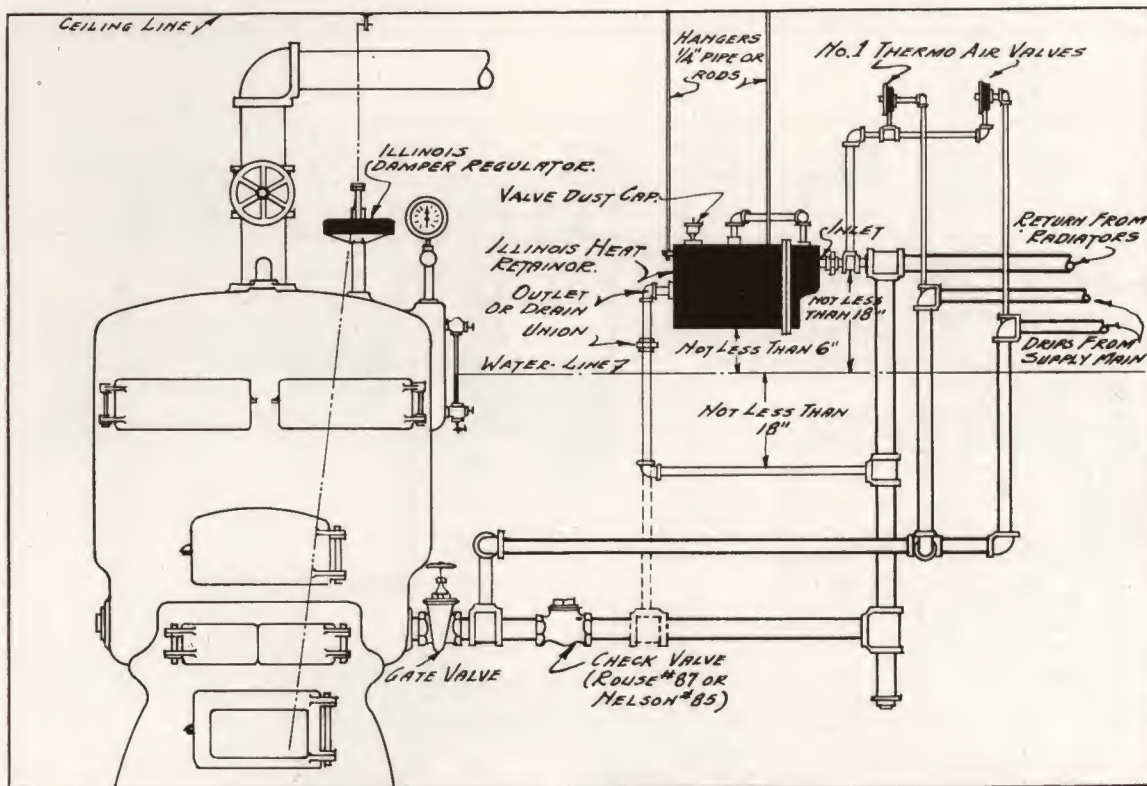 CEILING LINE
HANGERS
1/4" PIPE OR
RODS
NO.1 THERMO AIR VALVES
ILLINOIS
DAMPER REGULATOR.
VALVE DUST CAP.
INLET
RETURN FROM
RADIATORS
ILLINOIS HEAT
RETAINOR.
OUTLET
OR DRAIN
UNION
NOT LESS
THAN 18"
NOT LESS THAN 6"
DRIPS FROM
SUPPLY MAIN
WATER-LINE
NOT LESS THAN
18"
GATE VALVE
CHECK VALVE
(ROUSE #87 OR
NELSON #85)